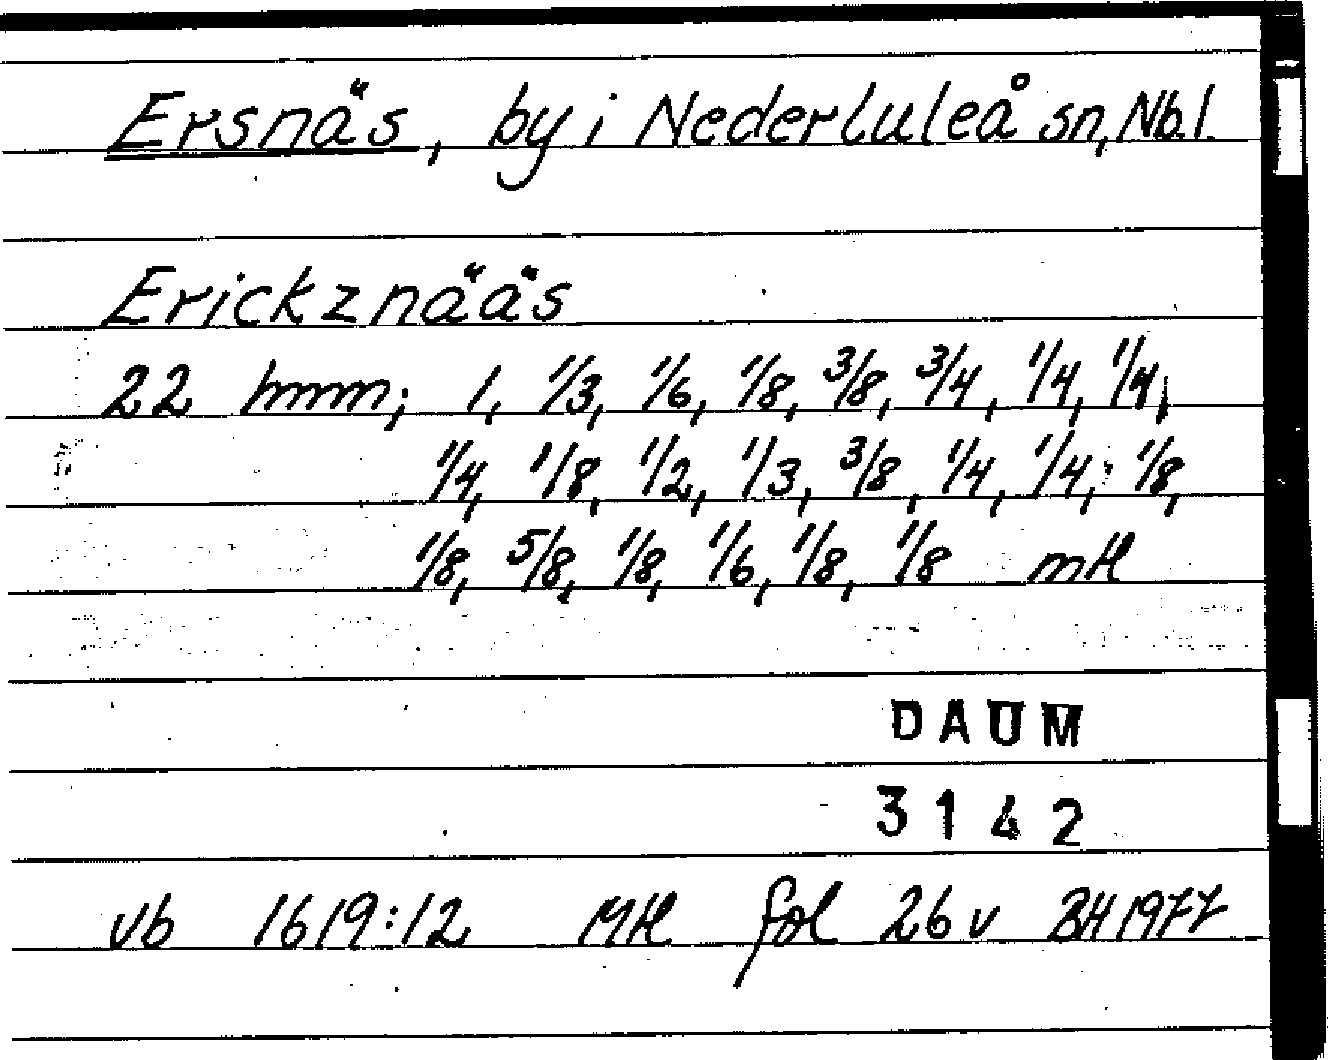 Ersnäs, by i Nederluleå sn, Nb.l.
Erickznääs
22 hmm; 1, 1/3, 1/6, 1/8, 3/8, 3/4, 1/4, 1/4,
1/4, 1/8, 1/2, 1/3, 3/8, 1/4, 1/4, 1/8,
1/8, 5/8, 1/8, 1/6, 1/8, 1/8 mtl
DAUM
3142
vb 1619:12 Mtl fol 26 v BH 1977